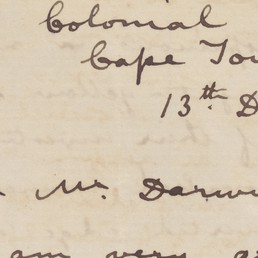 Colonial
Cape To
13th D
Mr. Darw
am very